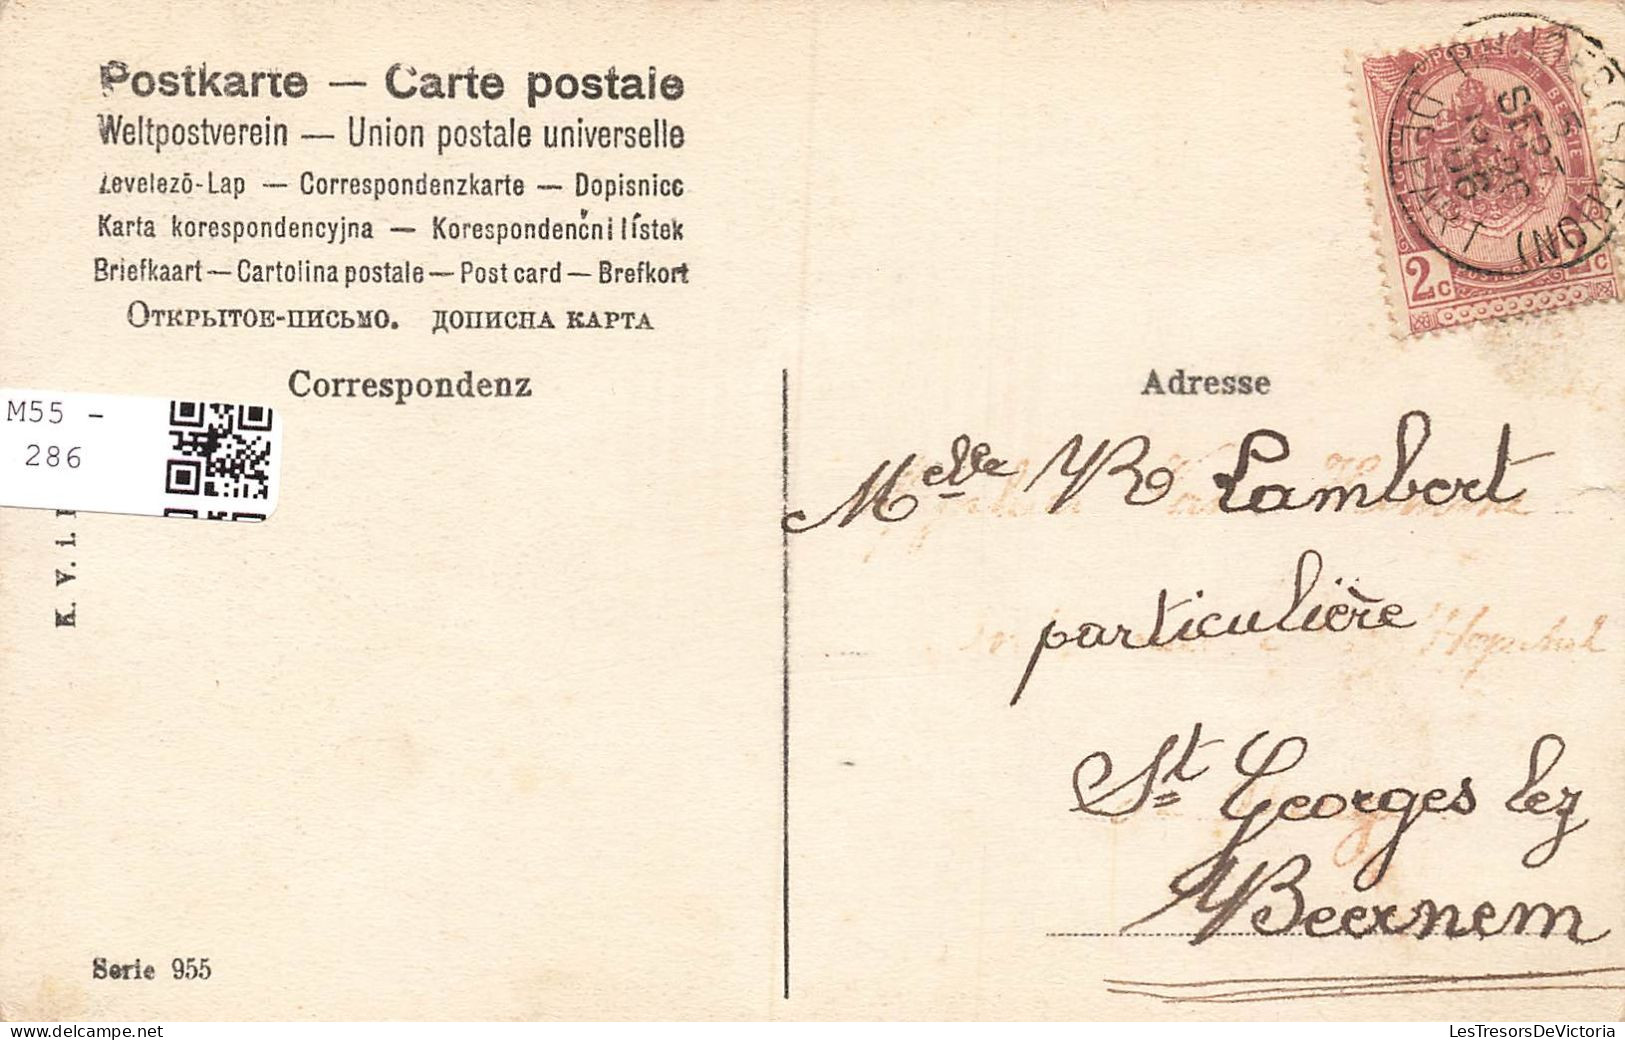 Postkarte — Carte postale
Weltpostverein — Union postale universelle
Levelezõ-Lap — Correspondenzkarte — Dopisnicc
Karta korespondencyjna — Korespondenčni lístek
Briefkaart — Cartolina postale — Post card — Brefkort
Открытое-письмо. дописна карта
Correspondenz
Adresse
M55 -
286
K. V. i.
POSTES
2c
SEPT
Melle R Lambert
particulière
St Georges lez
Beernem
Serie 955
LesTresorsDeVictoria